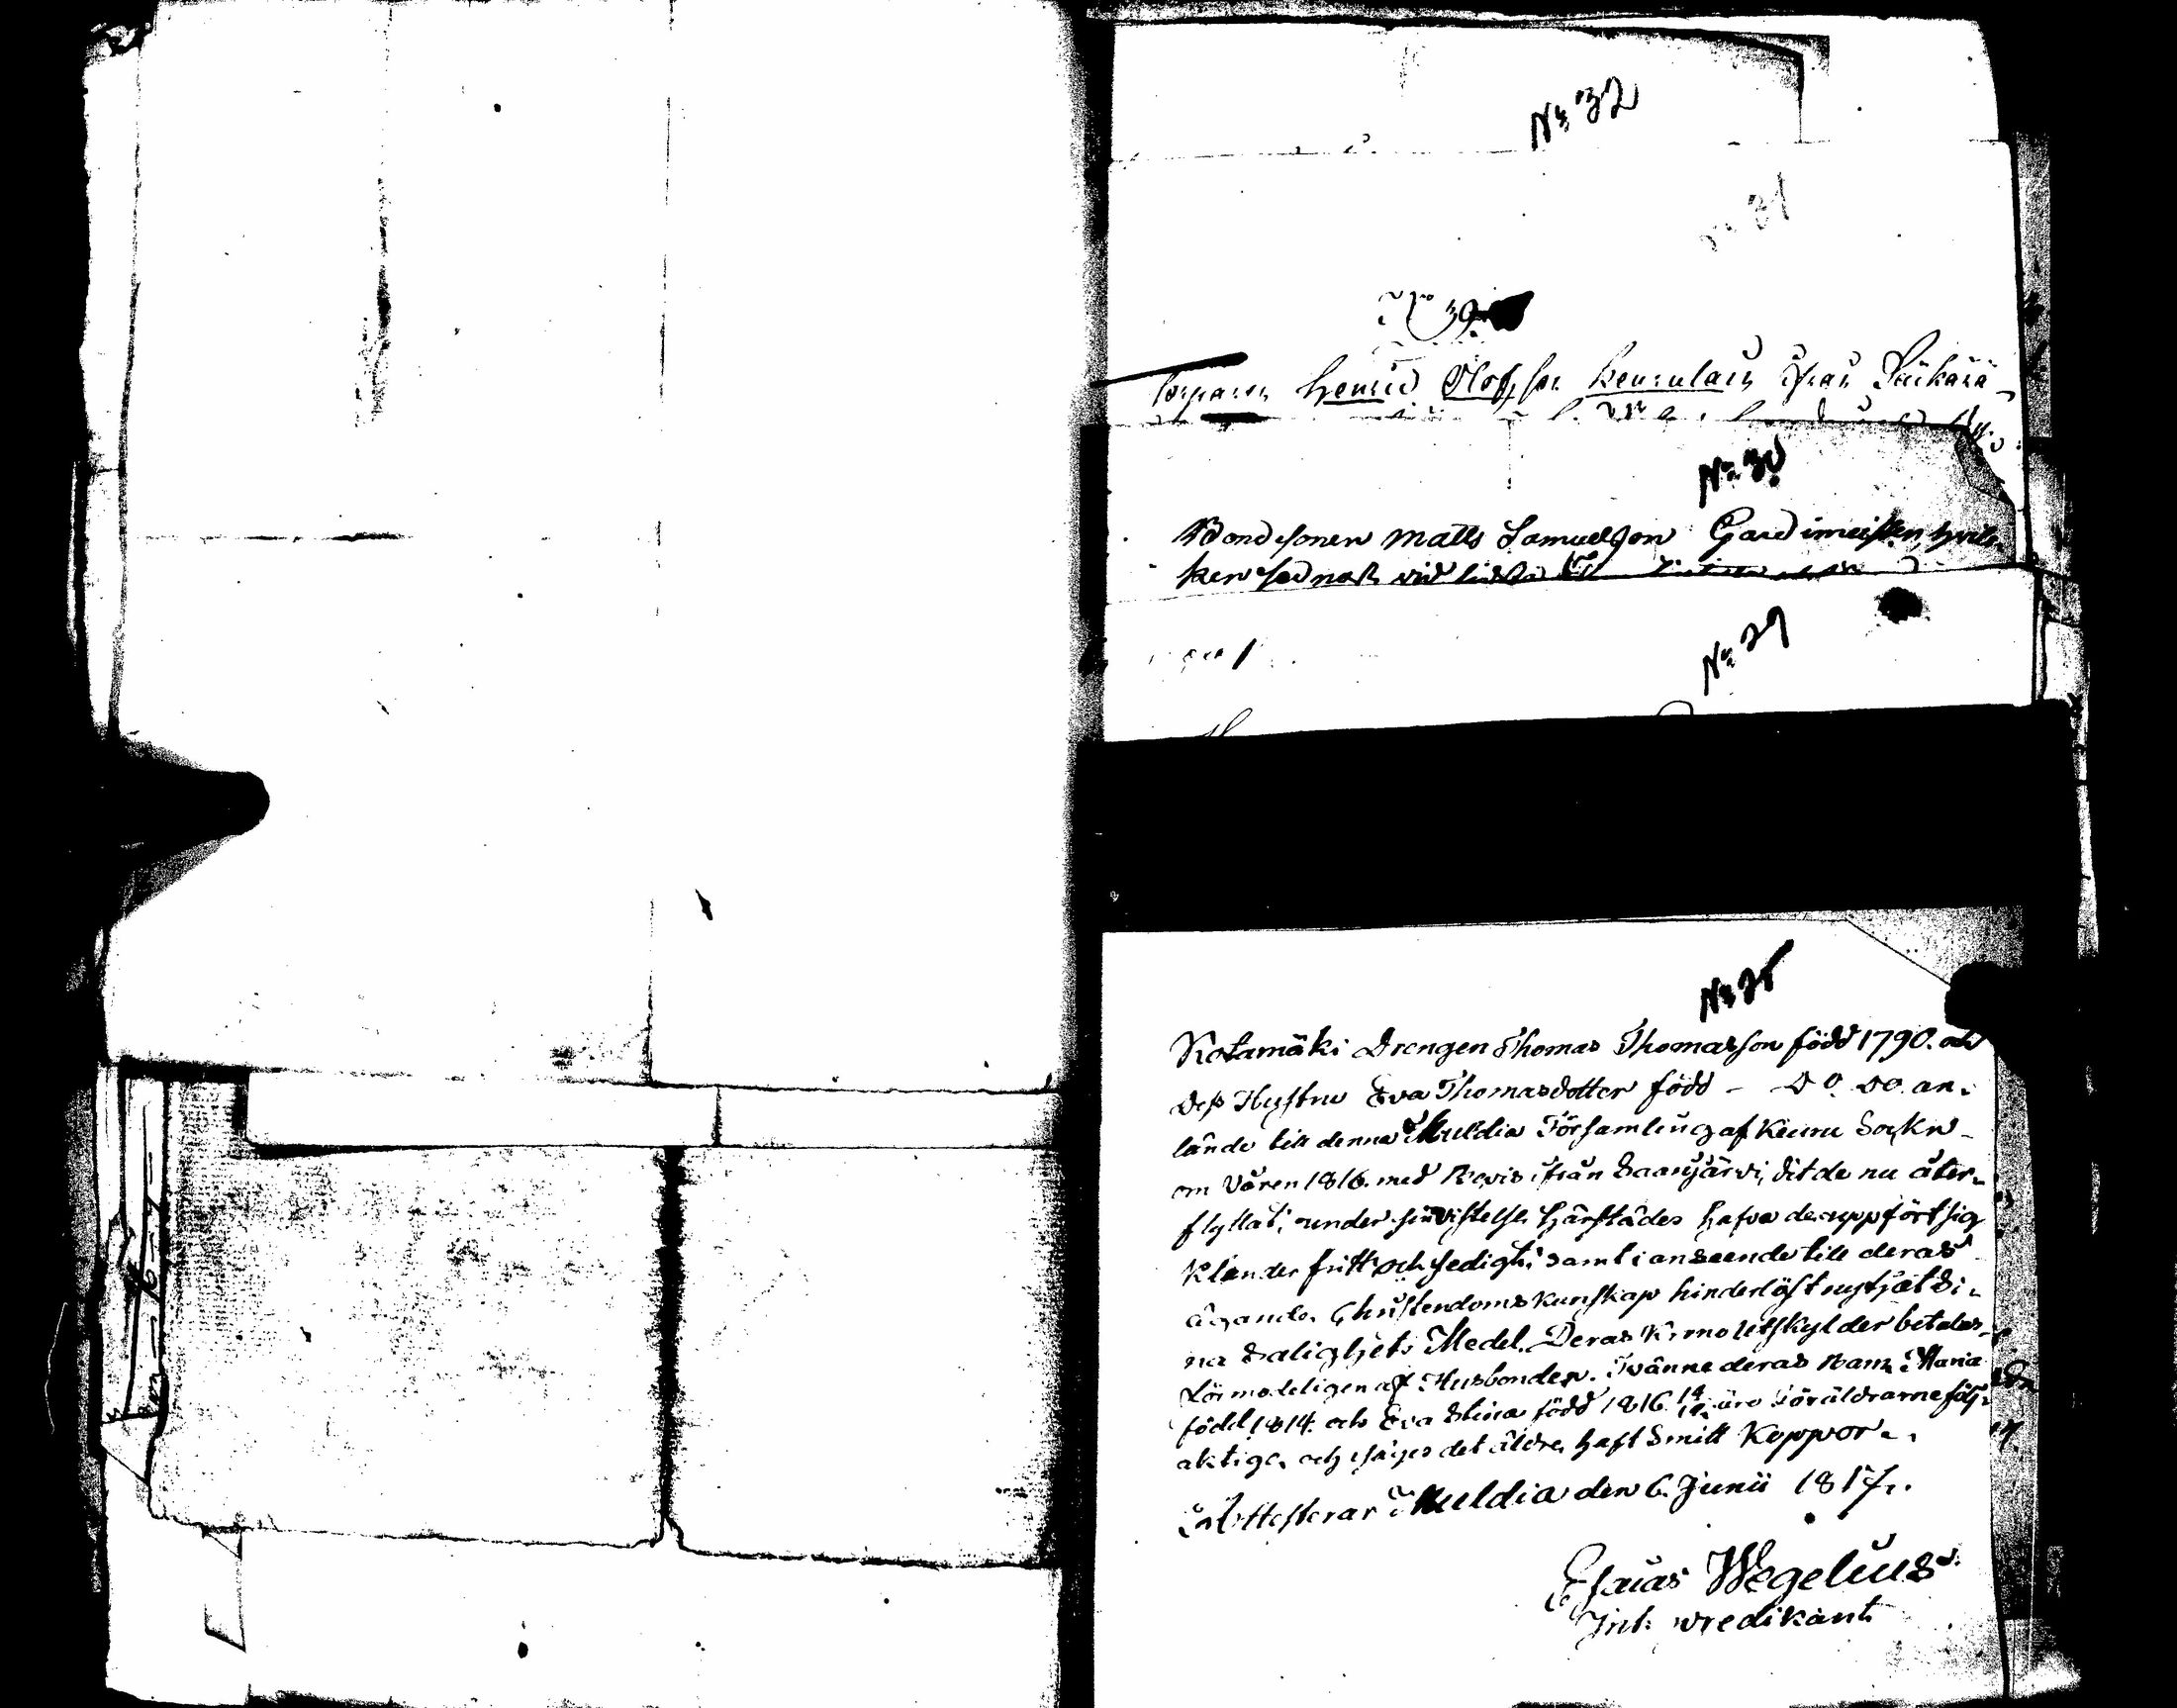 No 32
31
No 39
Torparen Henric Olofsson Keurulain ifrån
No 30
Bondesonen Matts Samuelsson Gardimeisten, hvil-
ken sednast vid
No 29
No 28
Kotamäki Drengen Thomas Thomasson född 1790. och
dess Hustru Eva Thomasdotter född - Do. Do. an-
lände till denna Muldia Församling af Keuru Sokn
om Våren 1816. med Bevis ifrån Saarijärvi, dit de nu åter-
flyttat; under sin vistelse härstädes hafva de uppfört sig
klanderfritt och sedigt; samt i anseende till deras
ägande Christendomskunskap hinderlöst nystjat Si-
na Salighets Medel. Deras Kronoutskylder betalas
förmodeligen af Husbonden. Tvänne deras Barn Maria
född 1814. och Eva Stina född 1816 äro Föräldrarne följ-
aktige, och säges det äldre haft Smitt Koppor.
Attesterar Muldia den 6. Junii 1817.
Esaias Wegelius
Int: predikant